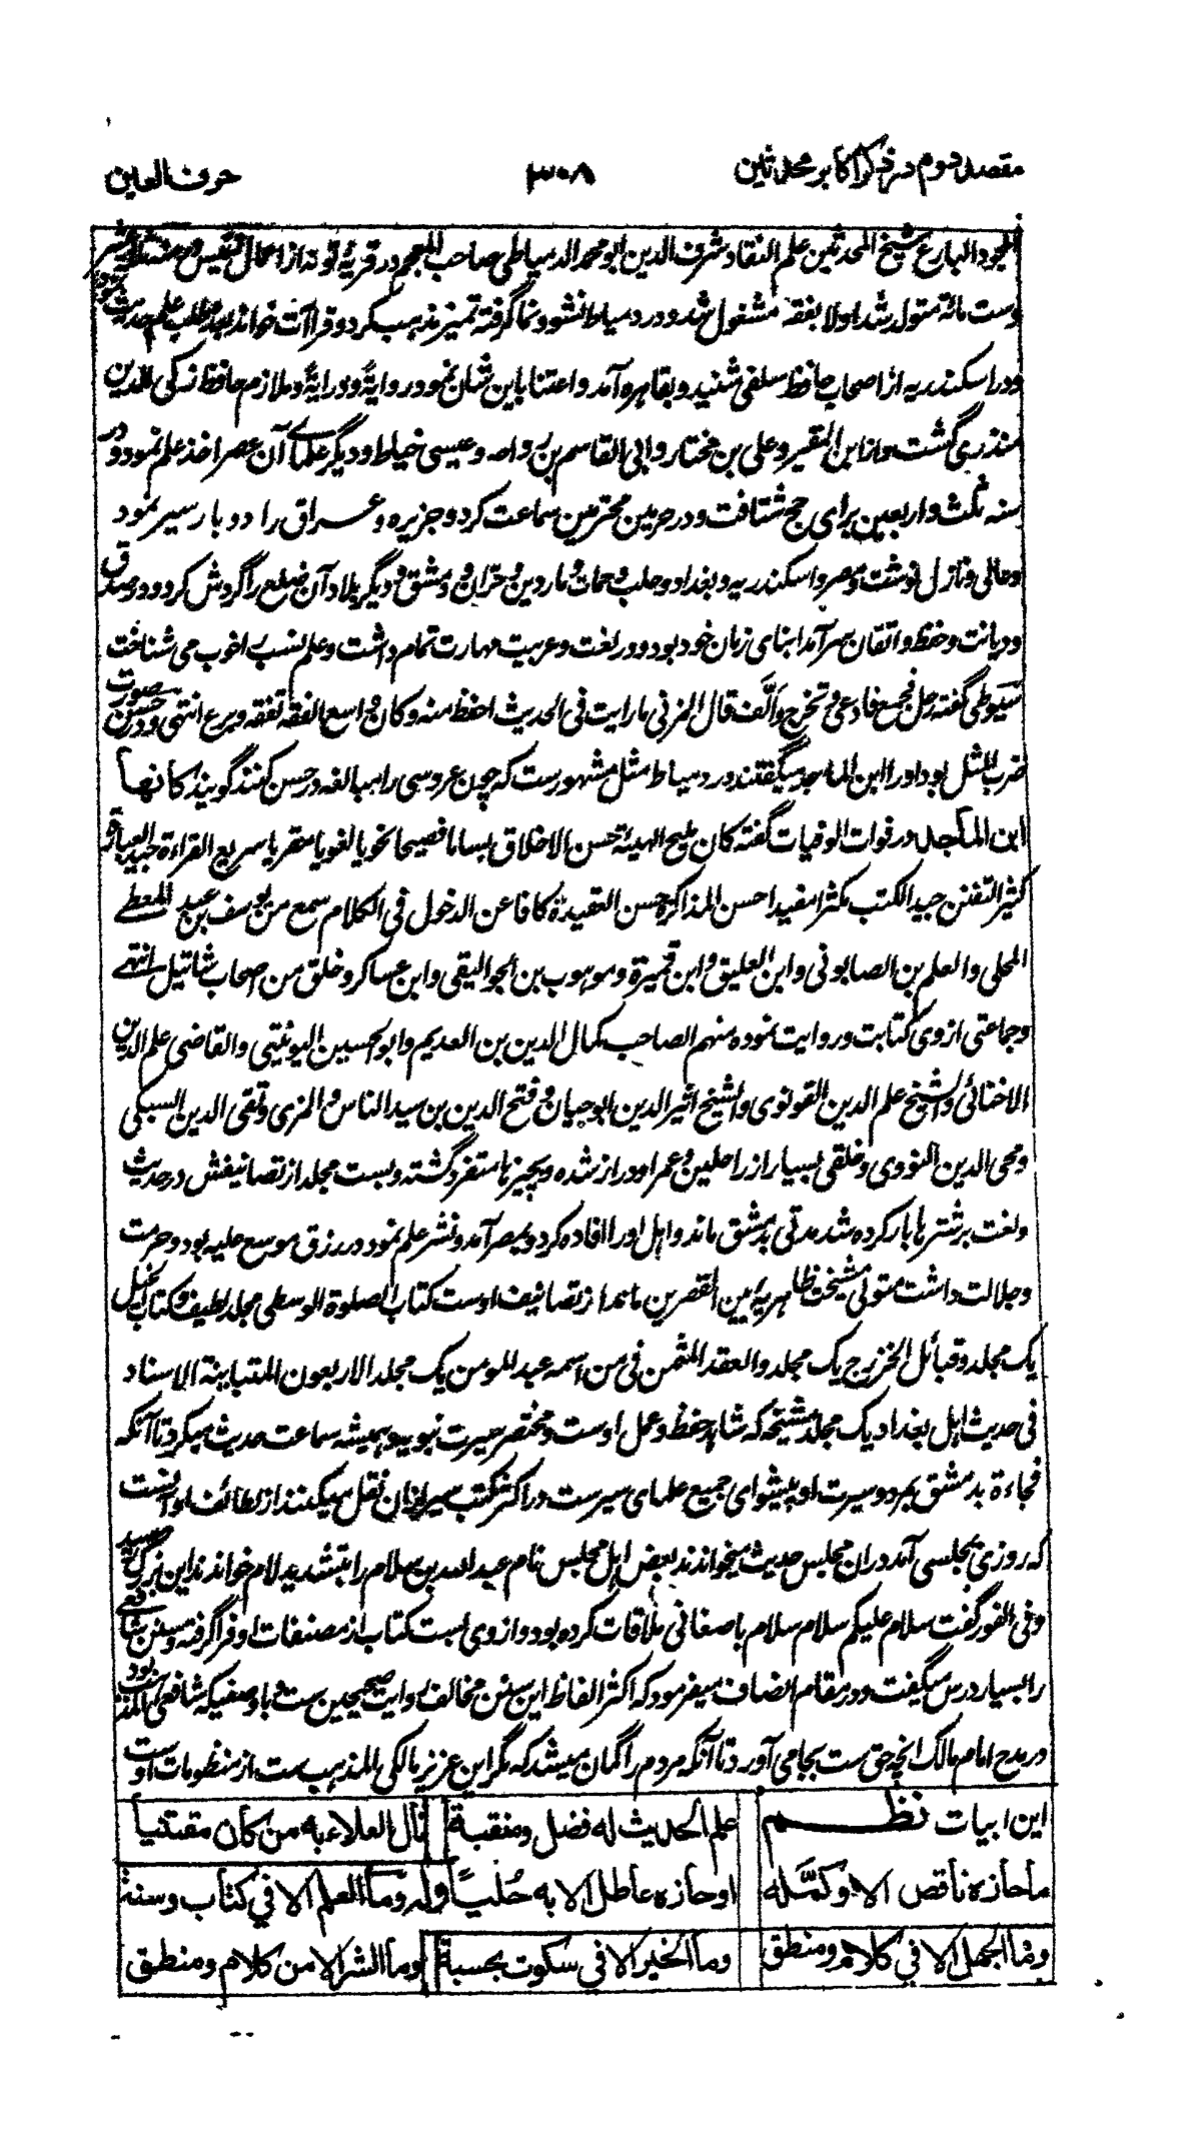 مقصد دوم در ذکر اکابر محدثین ۳۰۸ حرف العین
المجود البارع شیخ المحدثین علم النقاد شرف الدین ابو محمد الدمیاطی صاحب المعجم در قریهٔ تونه از اعمال تنیس در سنهٔ ثلث عشر
وست مائة متولد شد اولا بفقه مشغول شد و در دمیاط نشو و نما گرفته تمیز مذهب کرد و قراآت خواند بعد بطلب علم حدیث
و در اسکندریه از اصحاب حافظ سلفی شنید و بقاهره آمد و اعتنا باین شان نمود روایةً و درایةً و ملازم حافظ زکی الدین
منذری گشت و از ابن المقیر و علی بن مختار و ابی القاسم بن رواحه و عیسی خیاط و دیگر علمای آن عصر اخذ علم نمود و در
سنه ثلث و اربعین برای حج شتافت و در حرمین محترمین سماعت کرد و جزیره و عراق را دو بار سیر نمود
و عالی و نازل نوشت و مصر و اسکندریه و بغداد و حلب و حمات و ماردین و حران و دمشق و دیگر بلاد آن ضلع را گردش کرد و در صدق
و دیانت و حفظ و اتقان سرآمد ابنای زمان خود بود و در لغت و عربیت مهارت تمام داشت و علم نسب را خوب می شناخت
سیوطی گفته رحل فجمع فاوعی و تخرج و اَلَّف قال المزنی ما رایت فی الحدیث احفظ منه و کان واسع الفقه تفقه و برع انتهی و در حسن صورت
ضرب المثل بود او را ابن الماجد میگفتند و در دمیاط مثل مشهورست که چون عروسی را مبالغه در حسن کنند گویند کانها
ابن الماجد در فوات الوفیات گفته کان ملیح الهیئة حسن الاخلاق بساما فصیحا نحویا لغویا مقریا سریع القراءة جید العبارة
کثیر التفنن جید الکتب مکثرا مفیدا حسن المذاکرة حسن العقیدة کافا عن الدخول فی الکلام سمع من یوسف بن عبد المعطی
المحلی و العلم بن الصابونی و ابن العلیق و ابن قمیرة و موهوب بن الجوالیقی و ابن عساکر و خلق من اصحاب شاتیل انتهی
و جماعتی از وی کتابت و روایت نموده منهم الصاحب کمال الدین بن العدیم و ابو الحسین الیونینی و القاضی علم الدین
الاخنائی و الشیخ علم الدین القونوی و الشیخ اثیر الدین ابو حیان و فتح الدین بن سید الناس و المزی و تقی الدین السبکی
و محی الدین النووی و خلقی بسیار از راحلین و عمر او دراز شده و بچیزها متفرد گشته و بست مجلد از تصانیفش در حدیث
و لغت بر شترها بار کرده شد مدتی بدمشق ماند و اهل او را افاده کرد و بمصر آمد و نشر علم نمود در رزق موسع علیه بود و حرمت
و جلالت داشت متولی مشیخت ظاهریه بین القصرین ماند از تصانیف اوست کتاب الصلوة الوسطی مجلد لطیف و کتاب الخیل
یک مجلد و قبائل الخزرج یک مجلد و العقد المثمن فی من اسمه عبد المومن یک مجلد الاربعون المتباینة الاسناد
فی حدیث اهل بغداد یک مجلد مشیخه که شاهد حفظ و عمل اوست و مختصر سیرت نبویه و همیشه سماعت حدیث میکرد تا آنکه
فجاءة بدمشق بمرد و سیرت او پیشوای جمیع علمای سیرست در اکثر کتب سیر ازان نقل میکنند از لطائف او آنست
که روزی بمجلسی آمد دران مجلس حدیث میخواندند بعض اهل مجلس نام عبد الله بن سلام را بتشدید لام خواندند این بزرگ رسید
و فی الفور گفت سلام علیکم سلام سلام با صغانی ملاقات کرده بود و از وی بست کتاب از مصنفات او فرا گرفته و سنن شافعی
را بسیار درس میگفت و در مقام انصاف میفرمود که اکثر الفاظ این سنن مخالف روایت صحیحین ست و با وصفیکه شافعی المذهب بود
در مدح امام مالک انچه حق ست بجا می آورد تا آنکه مردم را گمان میشد که مگر این عزیز مالکی المذهب ست از منظومات اوست
این ابیات نظم علم الحدیث له فضل ومنقبة نال العلاء به من کان مقتنیا
ما حازه ناقص الا وکمَّله اوحازه عاطل الا به حُلیا وله وما العلم الا فی کتاب وسنة
وما الجهل الا فی کلام ومنطق وما الخیر الا فی سکوت بحسبة وما الشر الا من کلام ومنطق